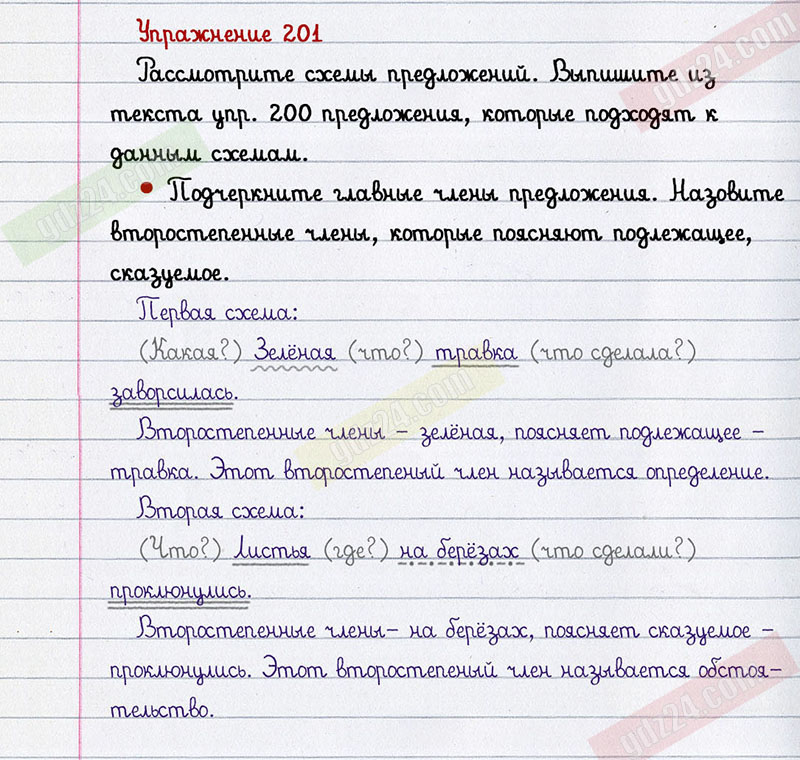 Упражнение 201
Рассмотрите схемы предложений. Выпишите из
текста упр. 200 предложения, которые подходят к
данным схемам.
• Подчеркните главные члены предложения. Назовите
второстепенные члены, которые поясняют подлежащее,
сказуемое.
Первая схема:
(Какая?) Зелёная (что?) травка (что сделала?)
заворсилась.
Второстепенные члены – зелёная, поясняет подлежащее –
травка. Этот второстепеный член называется определение.
Вторая схема:
(Что?) Листья (где?) на берёзах (что сделали?)
проклюнулись.
Второстепенные члены– на берёзах, поясняет сказуемое –
проклюнулись. Этот второстепеный член называется обстоя-
тельство.
gdz24.com
gdz24.com
gdz24.com
gdz24.com